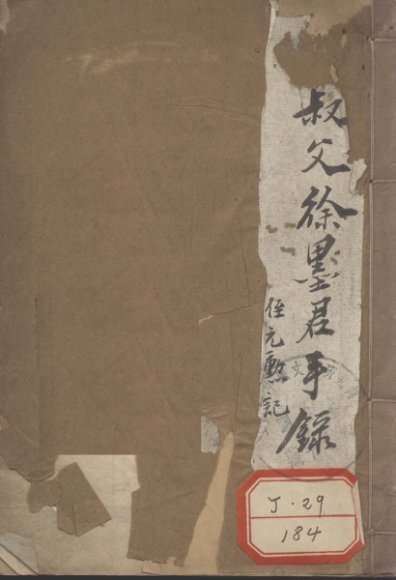 叔父徐墨君手錄
侄元勲記
J·29
184